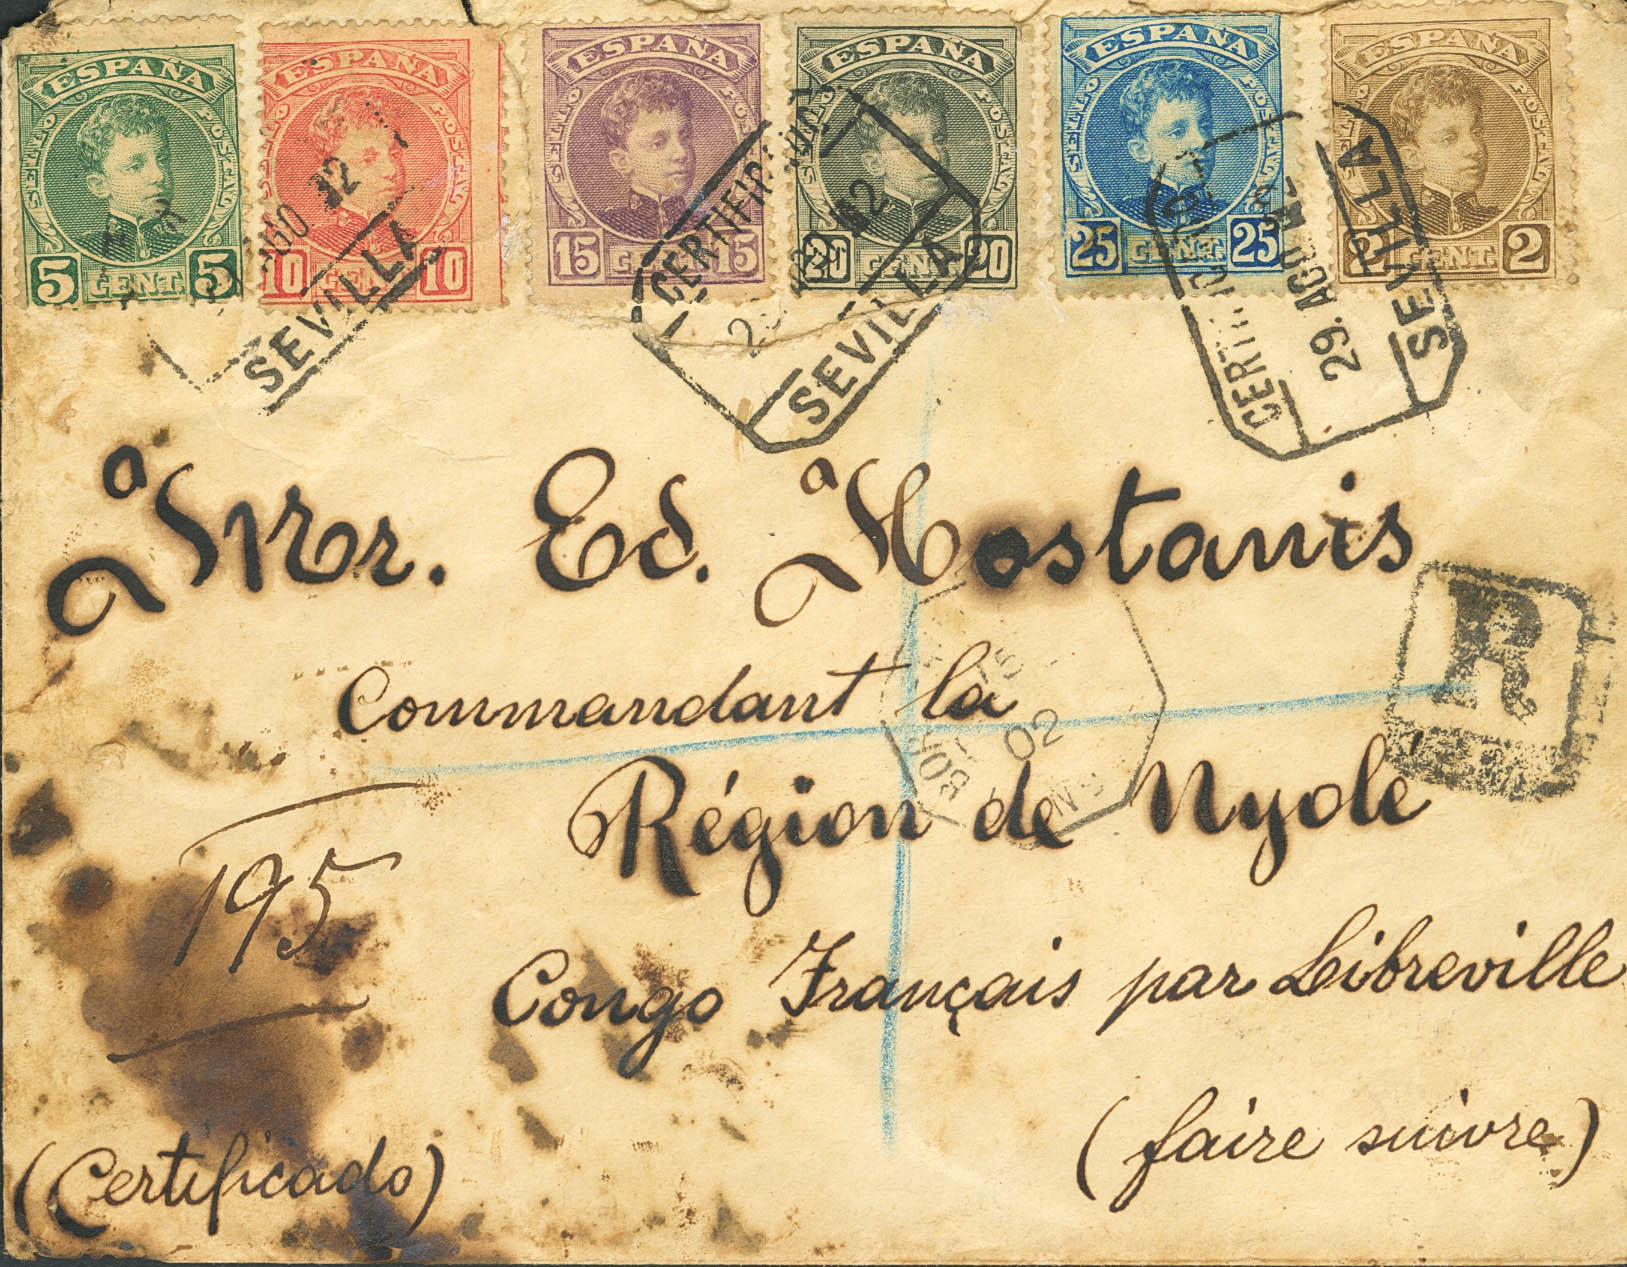 ESPAÑA ESPAÑA ESPAÑA ESPAÑA ESPAÑA ESPAÑA
SELLO POSTAL SELLO POSTAL SELLO POSTAL SELLO POSTAL SELLO POSTAL SELLO POSTAL
5 CENT. 5 10 CENT. 10 15 CENT. 15 20 CENT. 20 25 CENT. 25 2 CENT. 2
AGO 02
SEVILLA
CERTIFICADO
02
SEVILLA
CERTIFICADO
29. AGO 02
SEVILLA
Mr. Ed. Hostanis
R
Commandant la
15
02
BOR
Région de Nyolé
195
Congo Français par Libreville
(faire suivre)
(Certificado)